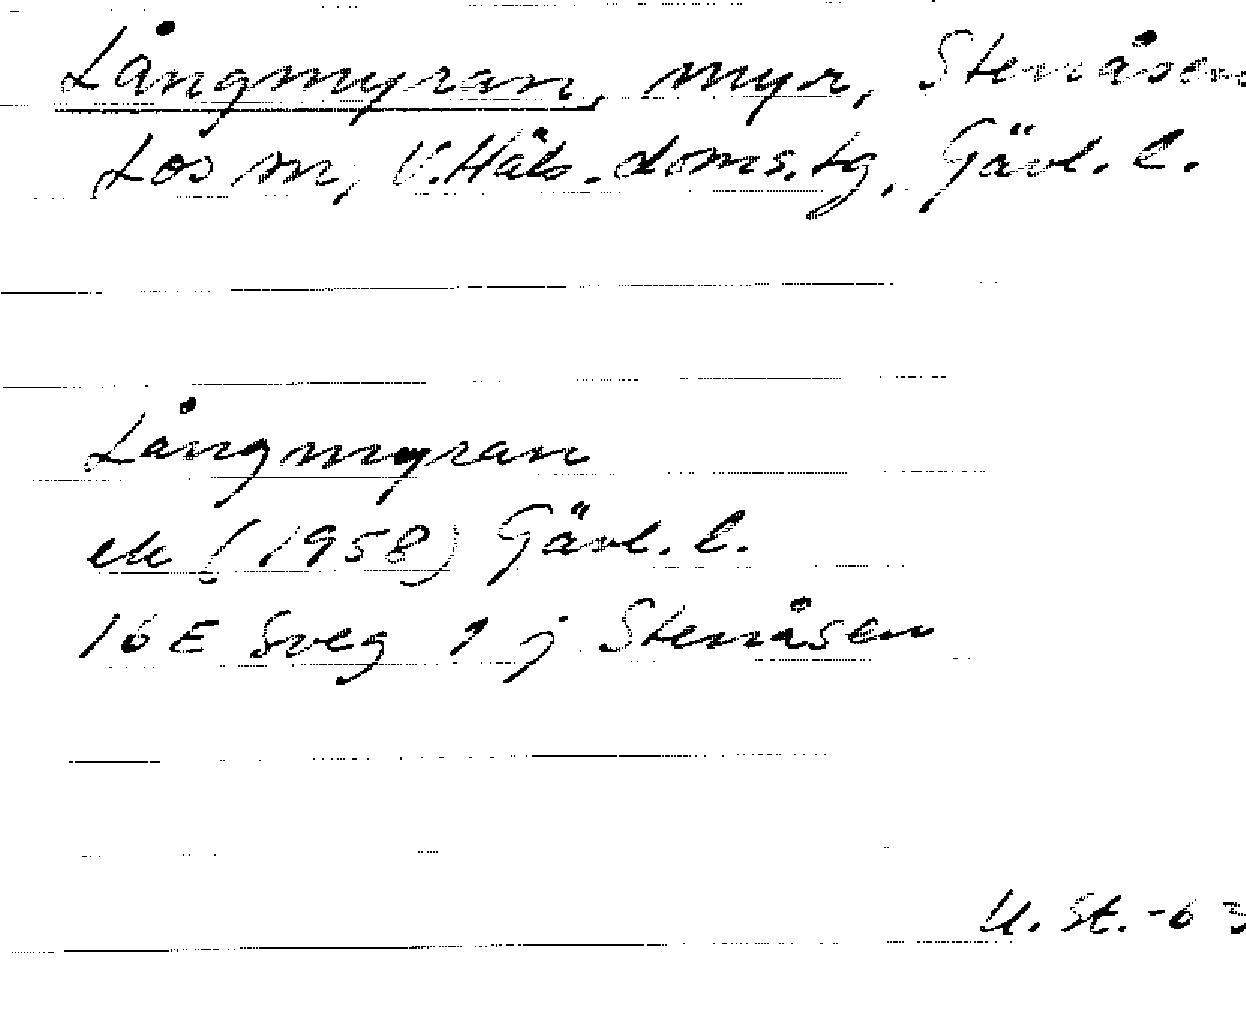 Långmyran, myr, Stenåsen
Los sn, V. Häls. doms.tg. Gävl. l.
Långmyran
ek (1958) Gävl. l.
16 E Sveg 1 j Stenåsen
U. St. -63